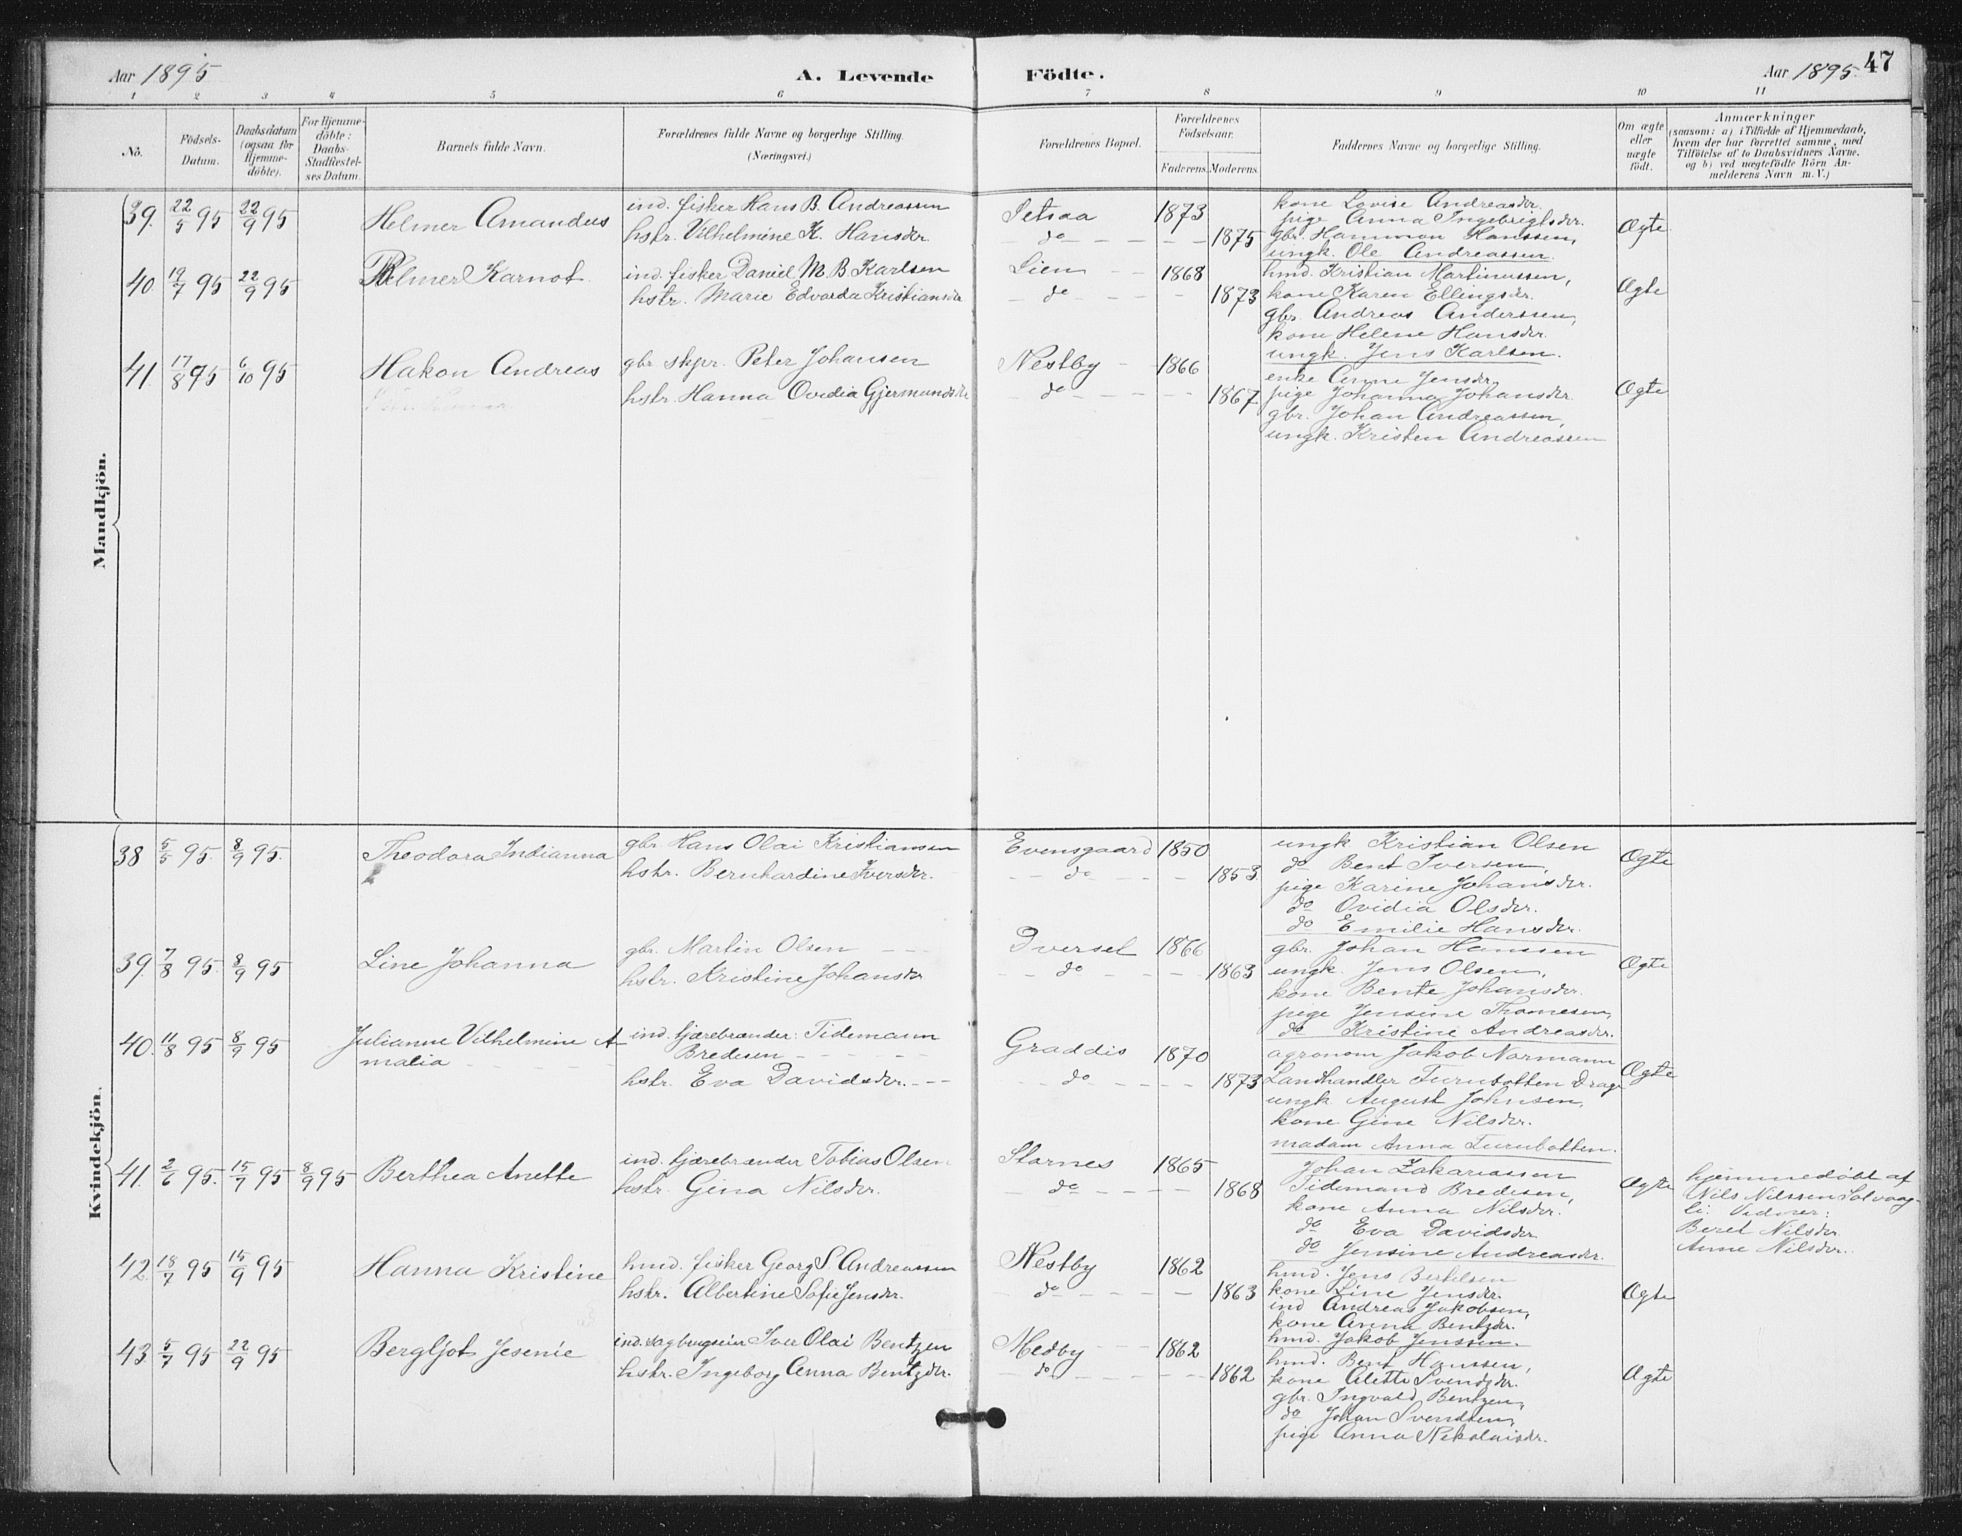 Aar 1895
A. Levende
Födte.
Aar 1895.
47
1 2 3 4 5 6 7 8 9 10 11
No.
Födsels-
Datum.
Daabsdatum
(ogsaa for
Hjemme-
döbte).
For Hjemme-
döbte:
Daabs-
Stadfæstel-
ses Datum.
Barnets fulde Navn.
Forældrenes fulde Navne og borgerlige Stilling.
(Næringsvei.)
Forældrenes Bopæl.
Forældrenes
Födselsaar.
Faderens. Moderens.
Faddernes Navne og borgerlige Stilling.
Om ægte
eller
uægte
födt.
Anmærkninger
(saasom: a) i Tilfælde af Hjemmedaab,
hvem der har forrettet samme, med
Tilföielse af to Daabsvidners Navne,
og b) ved uægtefödte Börn An-
melderens Navn m. V.)
Mandkjön.
39. 22/5 95 22/9 95
Helmer Amandus
ind. fisker Hans B. Andreassen
hstr. Vilhelmine K. Hansdr.
Setsaa 1873
do 1875
kone Lovise Andreasdr.
pige Anna Ingebrigtsdr.
gbr. Hammon Hanssen,
ungk. Ole Andreassen.
Ægte
40. 19/7 95 22/9 95
Hilmer Karnot
ind. fisker Daniel M. B. Karlsen
hstr. Marie Edvarda Kristiansdr
Lien 1868
do 1873
hmd. Kristian Martinussen,
kone Karen Ellingsdr.
gbr. Andreas Anderssen,
kone Helene Hansdr.
ungk. Jens Karlsen.
Ægte
41. 17/8 95 6/10 95
Hakon Andreas
gbr. skpr. Peter Johansen
hstr. Hanna Ovidia Gjermundsdr
Nestby 1866
do 1867
enke Anne Jensdr.
pige Johanna Johansdr.
gbr. Johan Andreassen,
ungk. Kristen Andreassen
Ægte
Kvindekjön.
38 5/5 95. 8/9 95.
Theodora Indianna
gbr. Hans Olai Kristiansen
hstr. Bernhardine Iversdr.
Evensgaard 1850
do 1853
ungk Kristian Olsen
do Bent Iversen,
pige Karine Johansdr.
do Ovidia Olsdr.
do Emilie Hansdr.
Ægte
39. 7/8 95. 8/9 95
Line Johanna
gbr. Martin Olsen
hstr. Kristine Johansdr
Dversel 1866
do 1863
gbr. Johan Hanssen
ungk. Jens Olsen,
kone Bente Johansdr.
pige Jensine Thomesen,
do Kristine Andreasdr.
Ægte
40. 11/8 95 8/9 95
Julianne Vilhelmine A-
malia
ind. tjærebrænder: Tidemann
Bredesen
hstr. Eva Davidsdr.
Graddis 1870
do 1873
agronom Jakob Normann
Landhandler Furubotten Drage
ungk August Johnsen,
kone Gine Nilsdr.
madam Anna Furubotten.
Ægte
41. 2/6 95. 15/7 95 8/9 95
Berthea Anette
ind. tjærebrænder Tobias Olsen
hstr. Gina Nilsdr.
Starnes 1865
do 1868
Johan Zakariassen
Tidemand Bredesen,
kone Anna Nilsdr.
do Eva Davidsdr
do Jensine Andreasdr.
Ægte
hjemmedøbt af
Nils Nilssen Solvaag-
li. Vidner:
Beret Nilsdr
Anne Nilsdr.
42. 18/7 95 15/9 95
Hanna Kristine
hmd. fisker Georg S. Andreassen
hstr. Albertine Sofie Jensdr.
Nestby 1862
do 1863
hmd. Jens Bertelsen
kone Line Jensdr.
ind Andreas Jakobsen,
kone Anna Bentzdr.
hmd. Jakob Jenssen.
Ægte
43. 5/7 95 22/9 95
Bergljot Jesenie
ind. sagbrugseier Iver Olai Bentzen
hstr. Ingeborg Anna Bentzdr.
Medby 1862
do 1862
hmd. Bent Hanssen,
kone Alette Svendsdr.
gbr. Ingvald Bentzen,
do Johan Svendsen,
pige Anna Nikolaisdr.
Ægte